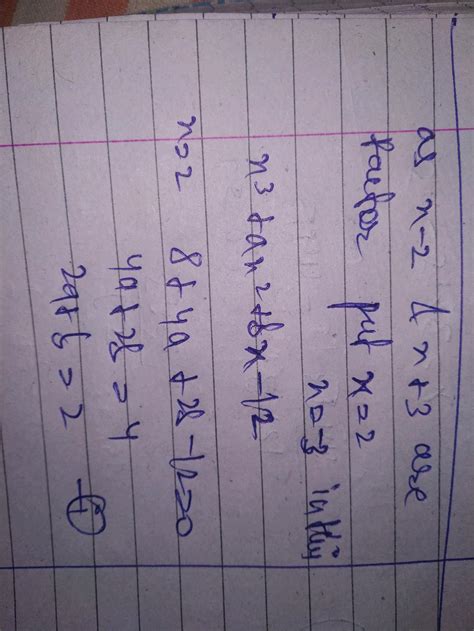 as x-2 & x+3 are
factor put x=2
x=-3 in this
x³+ax²+bx-12
x=2 8+4a+2b-12=0
4a+2b=4
2a+b=2 -①